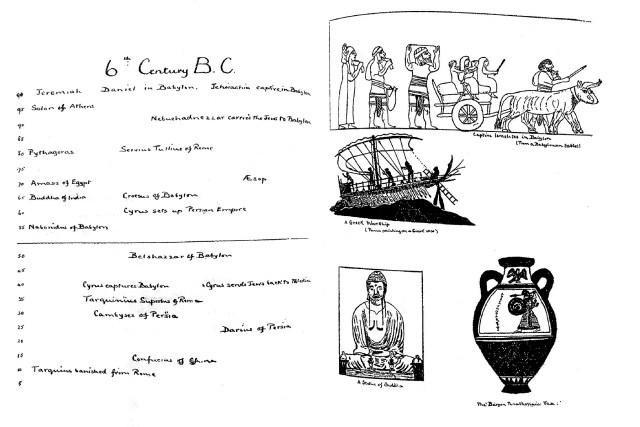 6th Century B.C.
Jeremiah Daniel in Babylon. Jehoiachin captive in Babylon
95 Solon of Athens
90 Nebuchadnezzar carries the Jews to Babylon
85
80 Pythagoras Servius Tullius of Rome
75
70 Amasis of Egypt Æsop
65 Buddha of India Croesus of Babylon
60 Cyrus sets up Persian Empire
55 Nabonidus of Babylon
50 Belshazzar of Babylon
45
40 Cyrus captures Babylon Cyrus sends Jews back to
35 Tarquinius Superbus of Rome
30 Cambyses of Persia
25 Darius of Persia
20
15 Confucius of China
Tarquins banished from Rome
5
Captive Israelites in Babylon
(From a Babylonian tablet)
A Greek Warship
(From painting on a Greek vase)
A Statue of Buddha
The Burgon Panathenaic Vase.